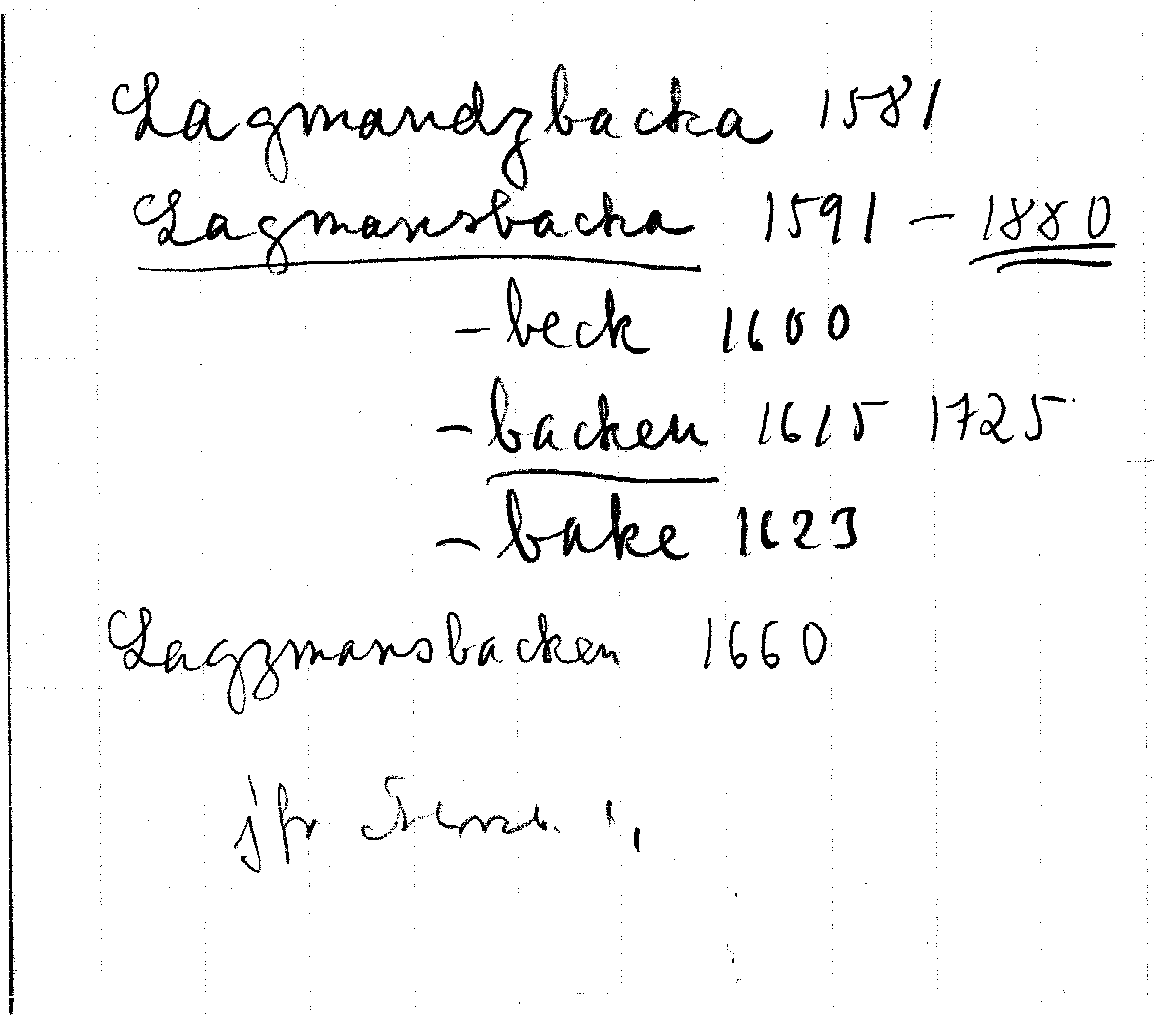 Lagmandzbacka 1581
Lagmansbacka 1591 – 1880
– beck 1600
– backen 1615 1725
– bake 1623
Lagzmansbacken 1660
jfr